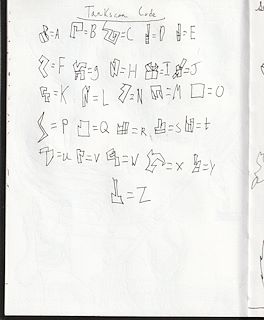 Tankscan Code
=A =B =C =D =E
=F =g =H =I =J
=K =L =N =M =O
=P =Q =R =S =t
=u =v =W =X =Y
=Z